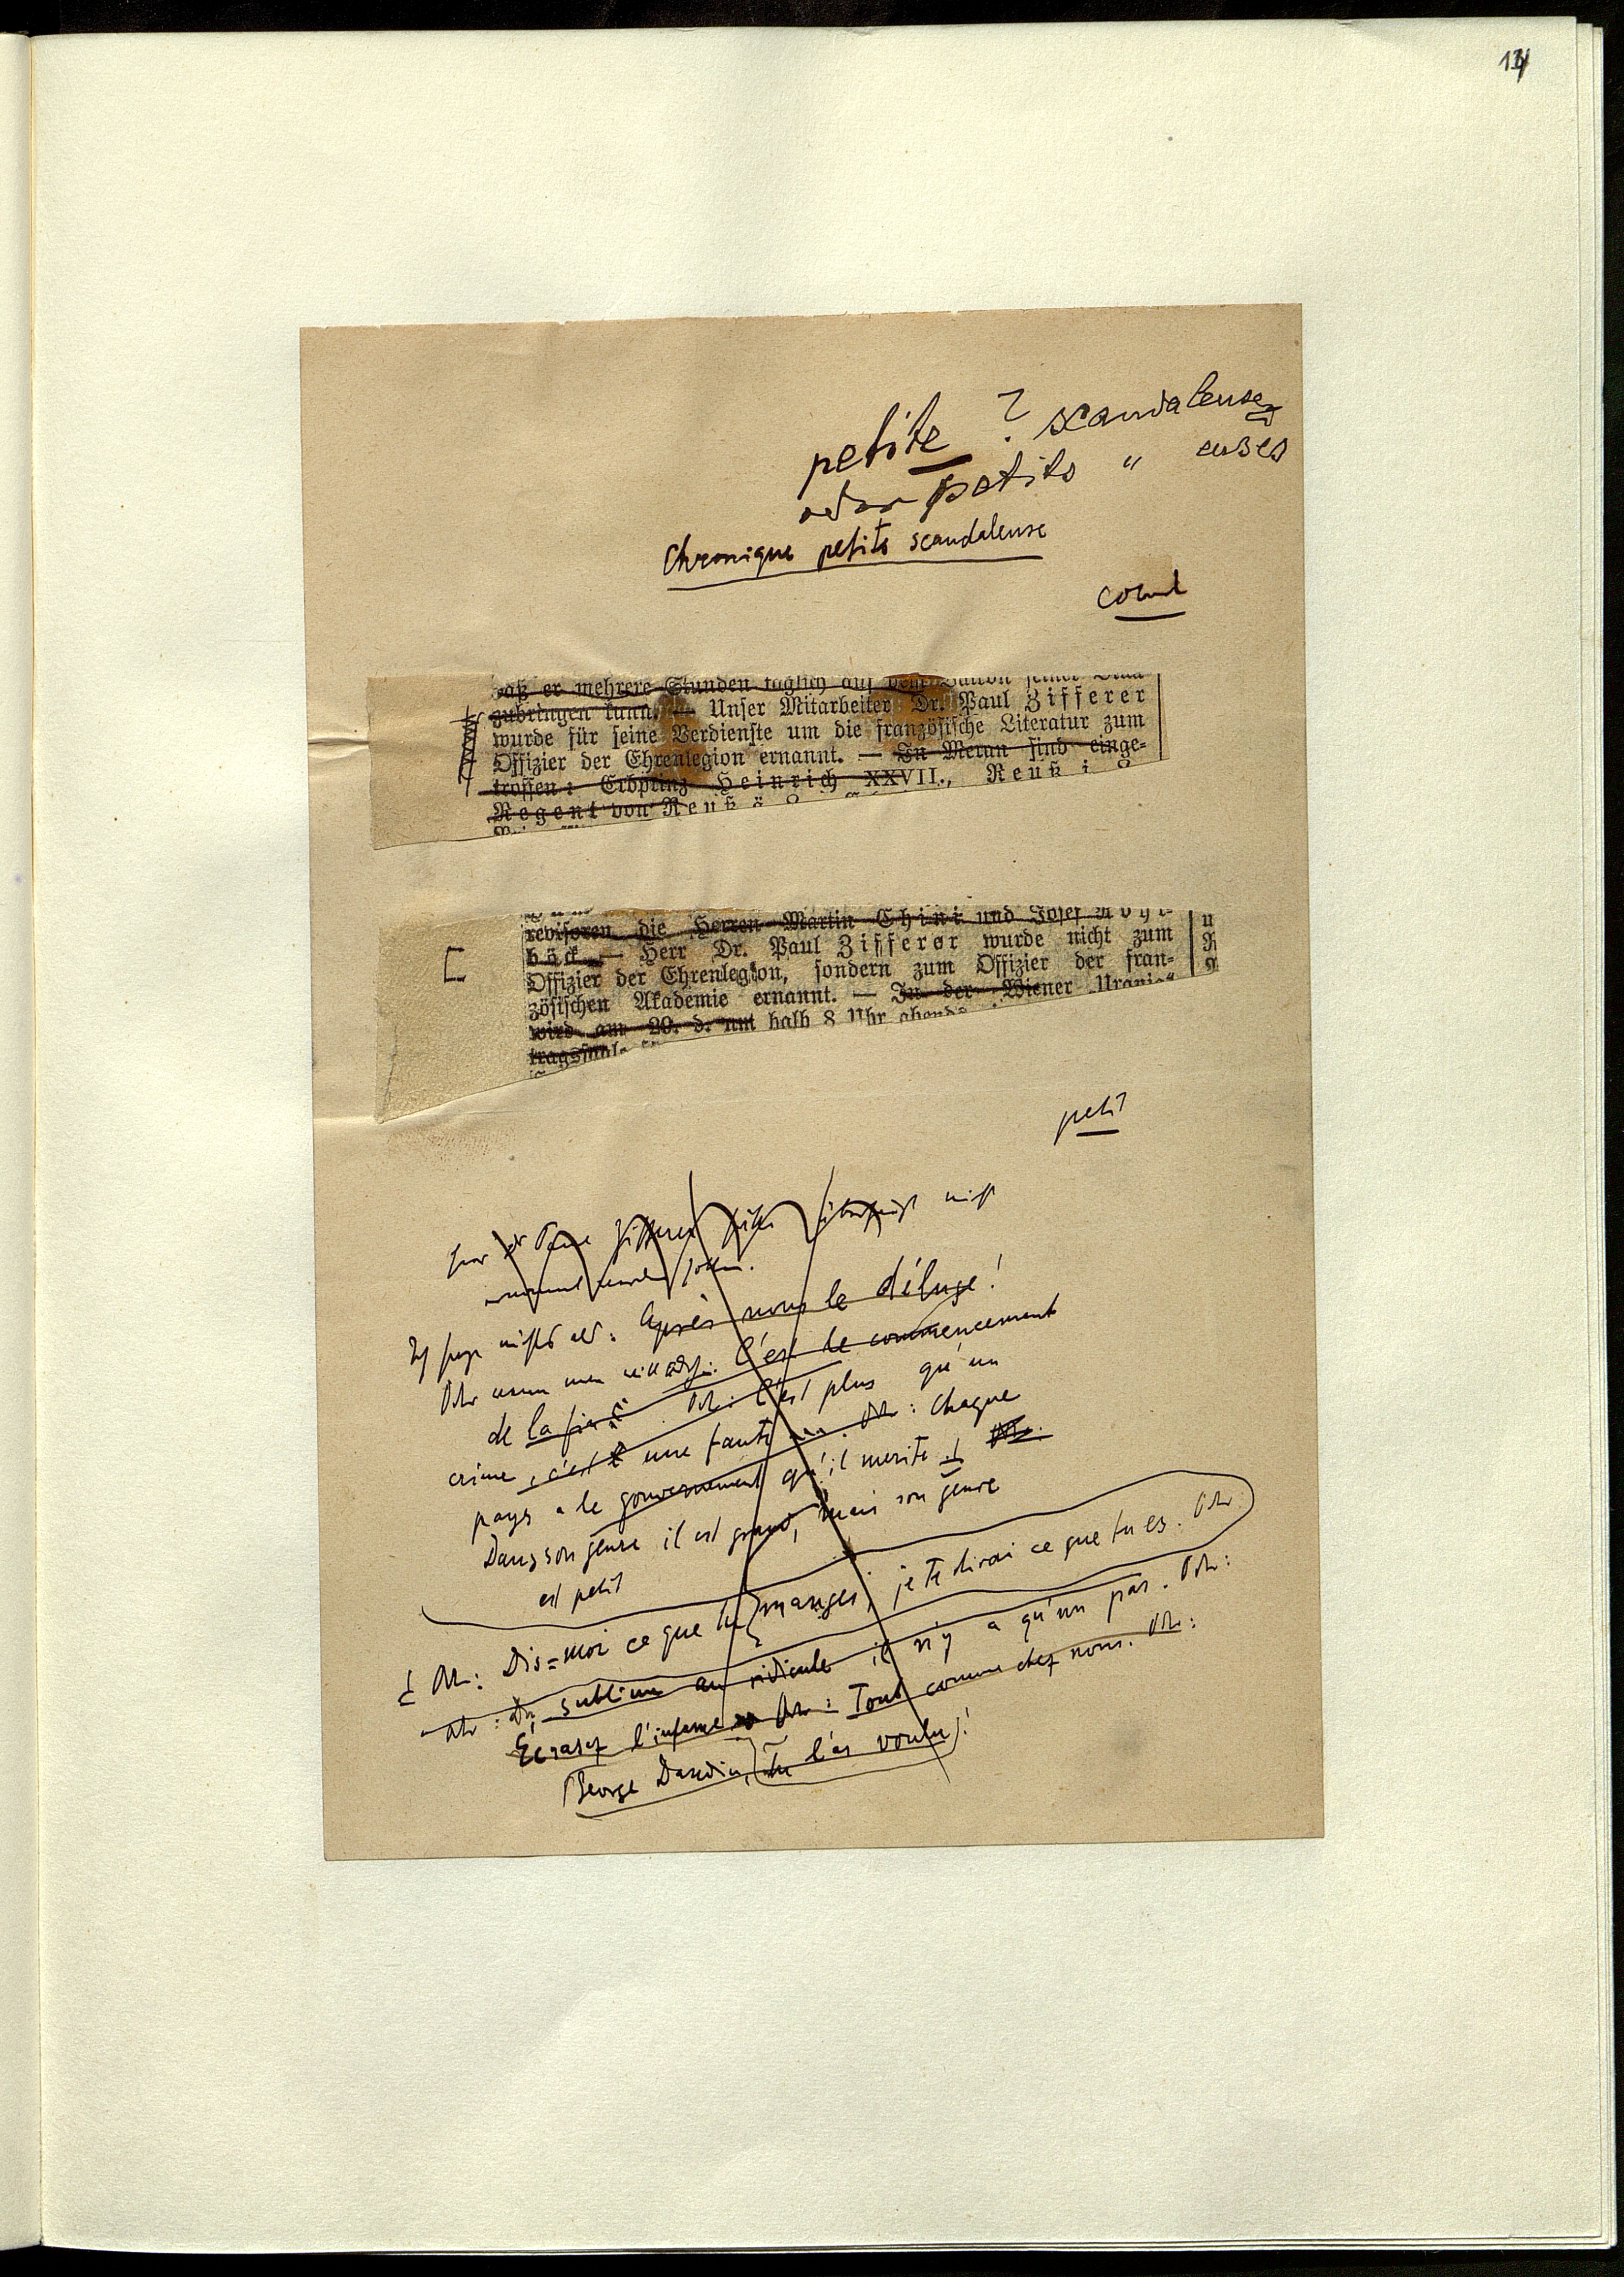 14
petite ? scandaleuse
oder petits " euses
Chronique petite scandaleuse
daß er mehrere Stunden täglich auf dem Balkon seiner
zubringen kann. — Unser Mitarbeiter Dr. Paul Zifferer
wurde für seine Verdienste um die französische Literatur zum
Offizier der Ehrenlegion ernannt. — In Meran sind einge-
troffen: Erbprinz Heinrich XXVII., Reuß j.
Regent von Reuß ä.
revisoren die Herren Martin Chini und Josef
böck. — Herr Dr. Paul Zifferer wurde nicht zum
Offizier der Ehrenlegion, sondern zum Offizier der fran-
zösischen Akademie ernannt. — In der Wiener „Urania"
wird am 20. d. um halb 8 Uhr abends
petit
Zifferer
werden sollen.
Ich sage nichts als: Après nous le déluge!
Oder wenn man will: C'est le commencement
de la fin. Oder: C'est plus qu'un
crime, c'est une faute. Oder: Chaque
pays a le gouvernement qu'il merite. Oder:
Dans son genre il est grand, mais son genre
est petit
Oder: Dis-moi ce que tu manges, je te dirai ce que tu es. Oder
Oder: Du sublime au ridicule il n'y a qu'un pas. Oder:
Écrasez l'infame Oder: Tout comme chez nous. Oder:
George Dandin, tu l'as voulu!